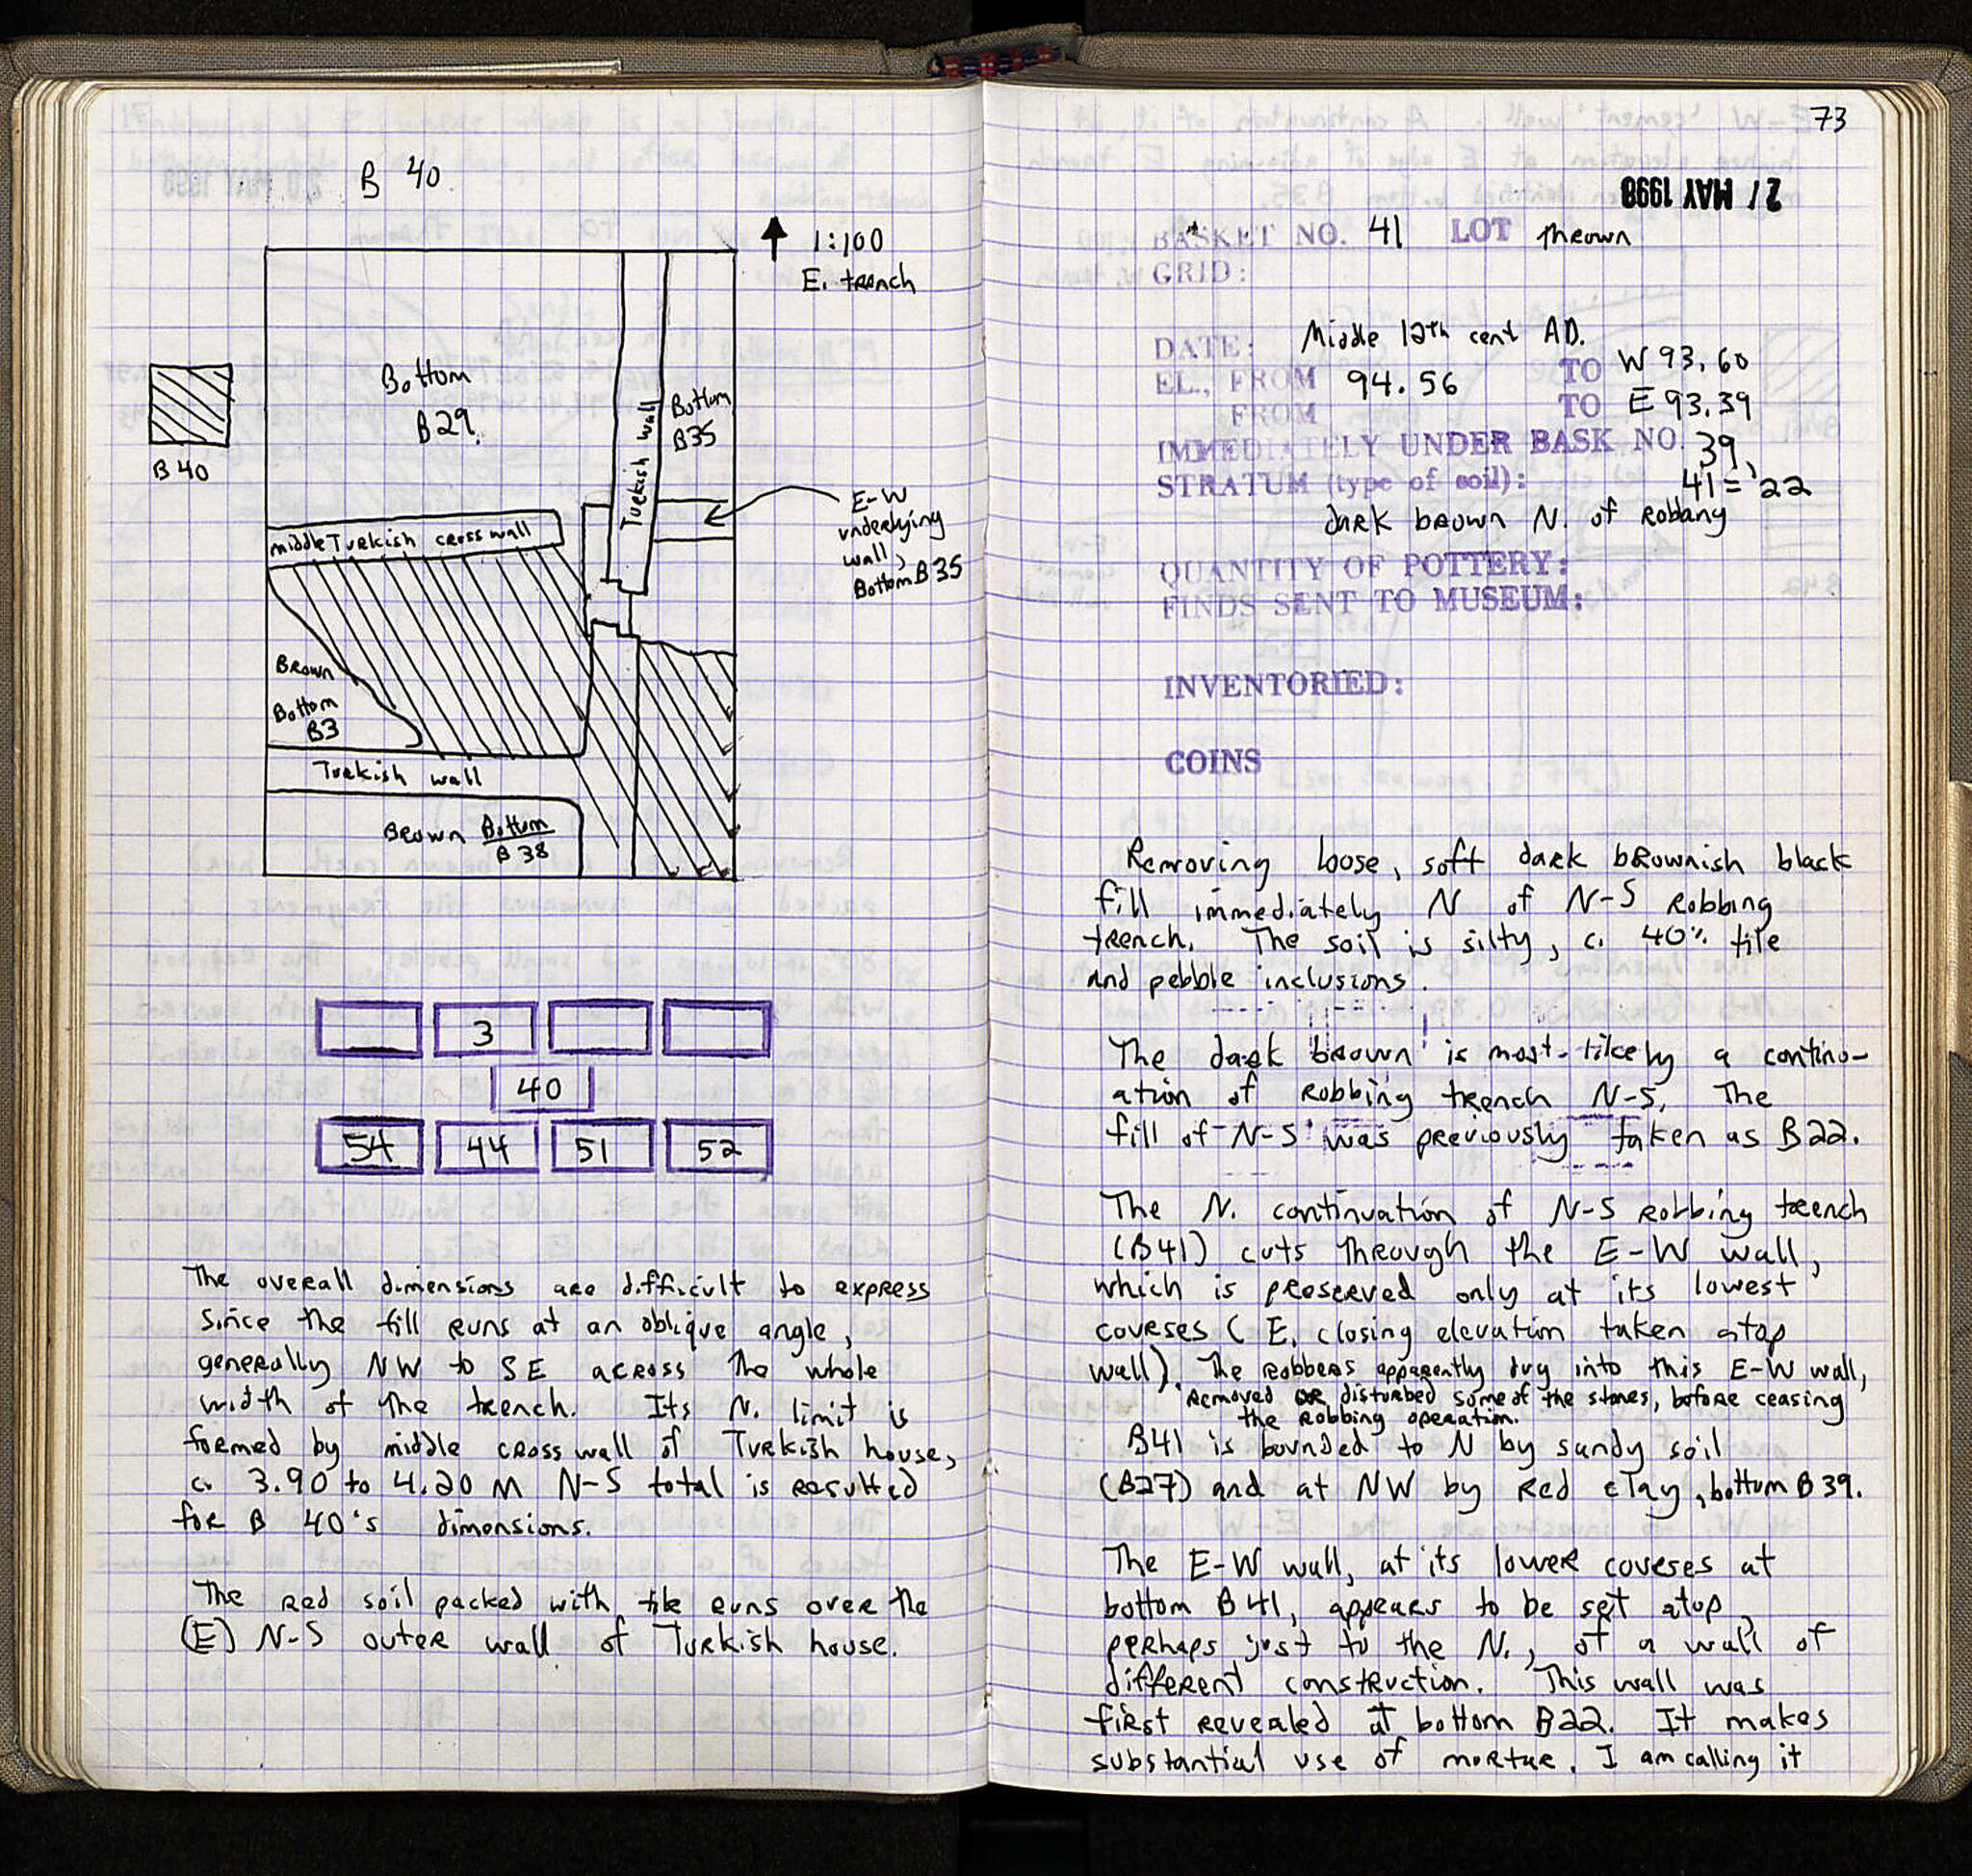 B 40
1:100
E. trench
Bottom
B29.
B 40
Turkish wall
Bottom
B35
E-W
underlying
wall,
Bottom B35
middle Turkish cross wall
Brown
Bottom
B3
Turkish wall
Brown Bottom
B 38
3
40
54 44 51 52
The overall dimensions are difficult to express
since the fill runs at an oblique angle,
generally NW to SE across the whole
width of the trench. Its N. limit is
formed by middle cross wall of Turkish house,
c. 3.90 to 4.20 M N-S total is resulted
for B 40's dimensions.
The red soil packed with tile runs over the
(E) N-S outer wall of Turkish house.
73
21 MAY 1998
BASKET NO. 41 LOT thrown
GRID:
DATE: Middle 12th cent AD.
EL., FROM 94.56 TO W 93.60
FROM TO E 93.39
IMMEDIATELY UNDER BASK NO. 39,
STRATUM (type of soil): 41 = '22
dark brown N. of Robbing
QUANTITY OF POTTERY:
FINDS SENT TO MUSEUM:
INVENTORIED:
COINS
Removing loose, soft dark brownish black
fill immediately N of N-S Robbing
trench. The soil is silty, c. 40% tile
and pebble inclusions.
The dark brown is most-likely a continu-
ation of Robbing trench N-S. The
fill of N-S was previously taken as B22.
The N. continuation of N-S robbing trench
(B41) cuts through the E-W wall,
which is preserved only at its lowest
courses (E. closing elevation taken atop
wall). The robbers apparently dug into this E-W wall,
removed or disturbed some of the stones, before ceasing
the robbing operation.
B41 is bounded to N by sandy soil
(B27) and at NW by red clay, bottom B39.
The E-W wall, at its lower courses at
bottom B41, appears to be set atop,
perhaps just to the N., of a wall of
different construction. This wall was
first revealed at bottom B22. It makes
substantial use of mortar. I am calling it